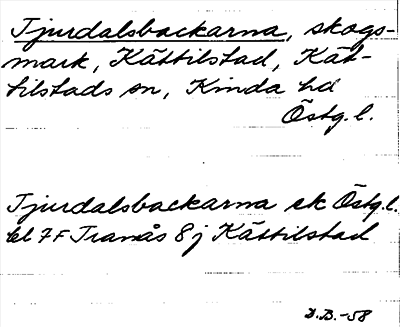 Tjurdalsbackarna, skogs-
mark, Kättilstad, Kät-
tilstads sn, Kinda hd
Östg. l.
Tjurdalsbackarna ek Östg. l.
bl 7F Tranås 8j Kättilstad
D.B.-58